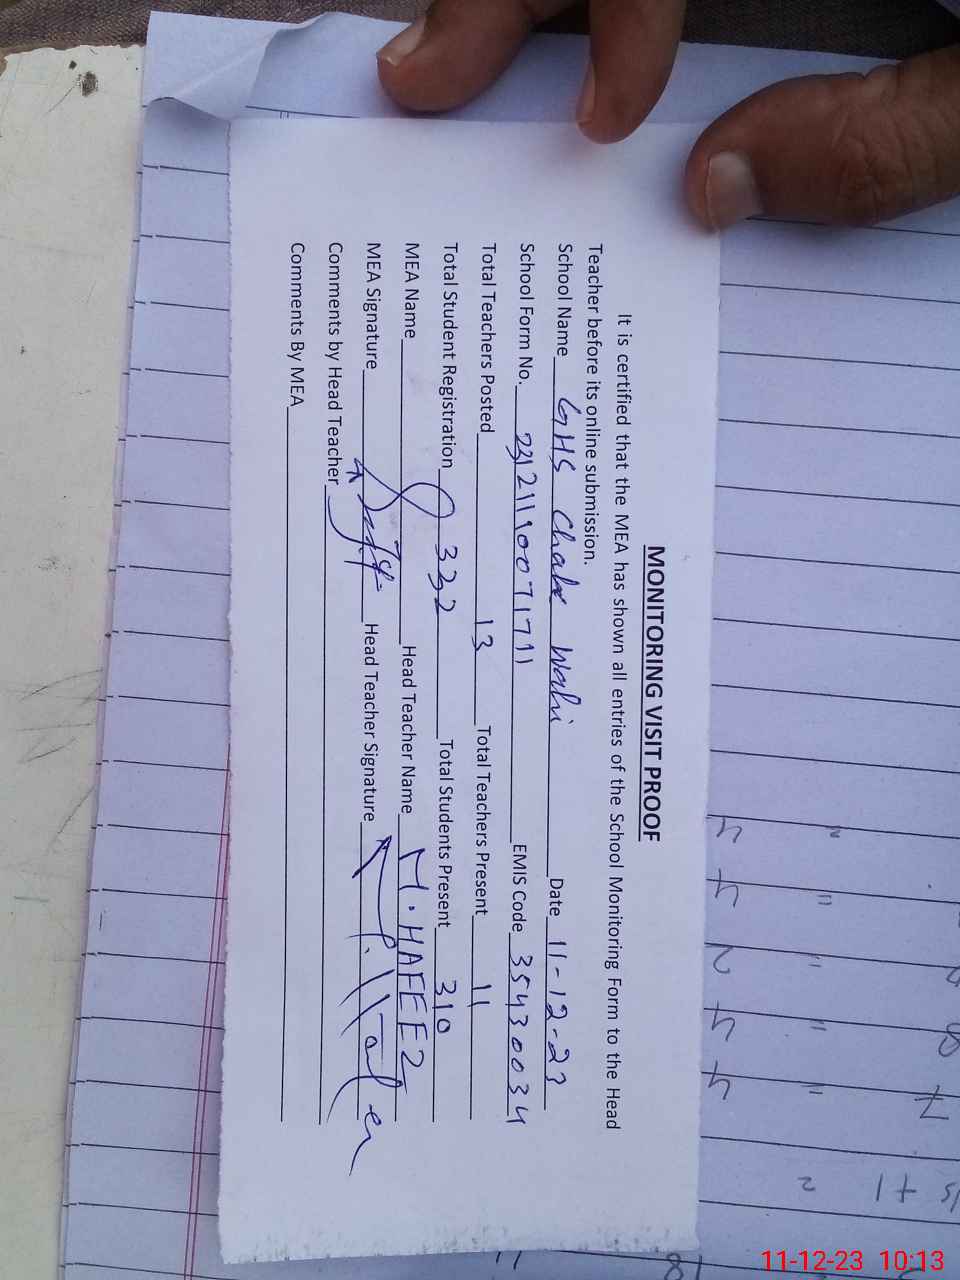 MONITORING VISIT PROOF
It is certified that the MEA has shown all entries of the School Monitoring Form to the Head
Teacher before its online submission.
School Name GHS Chak Wahi Date 11-12-23
School Form No. 23121110071711 EMIS Code 35430034
Total Teachers Posted 13 Total Teachers Present 11
Total Student Registration 332 Total Students Present 310
MEA Name Head Teacher Name M. HAFEEZ
MEA Signature Head Teacher Signature
Comments by Head Teacher
Comments By MEA
11-12-23 10:13